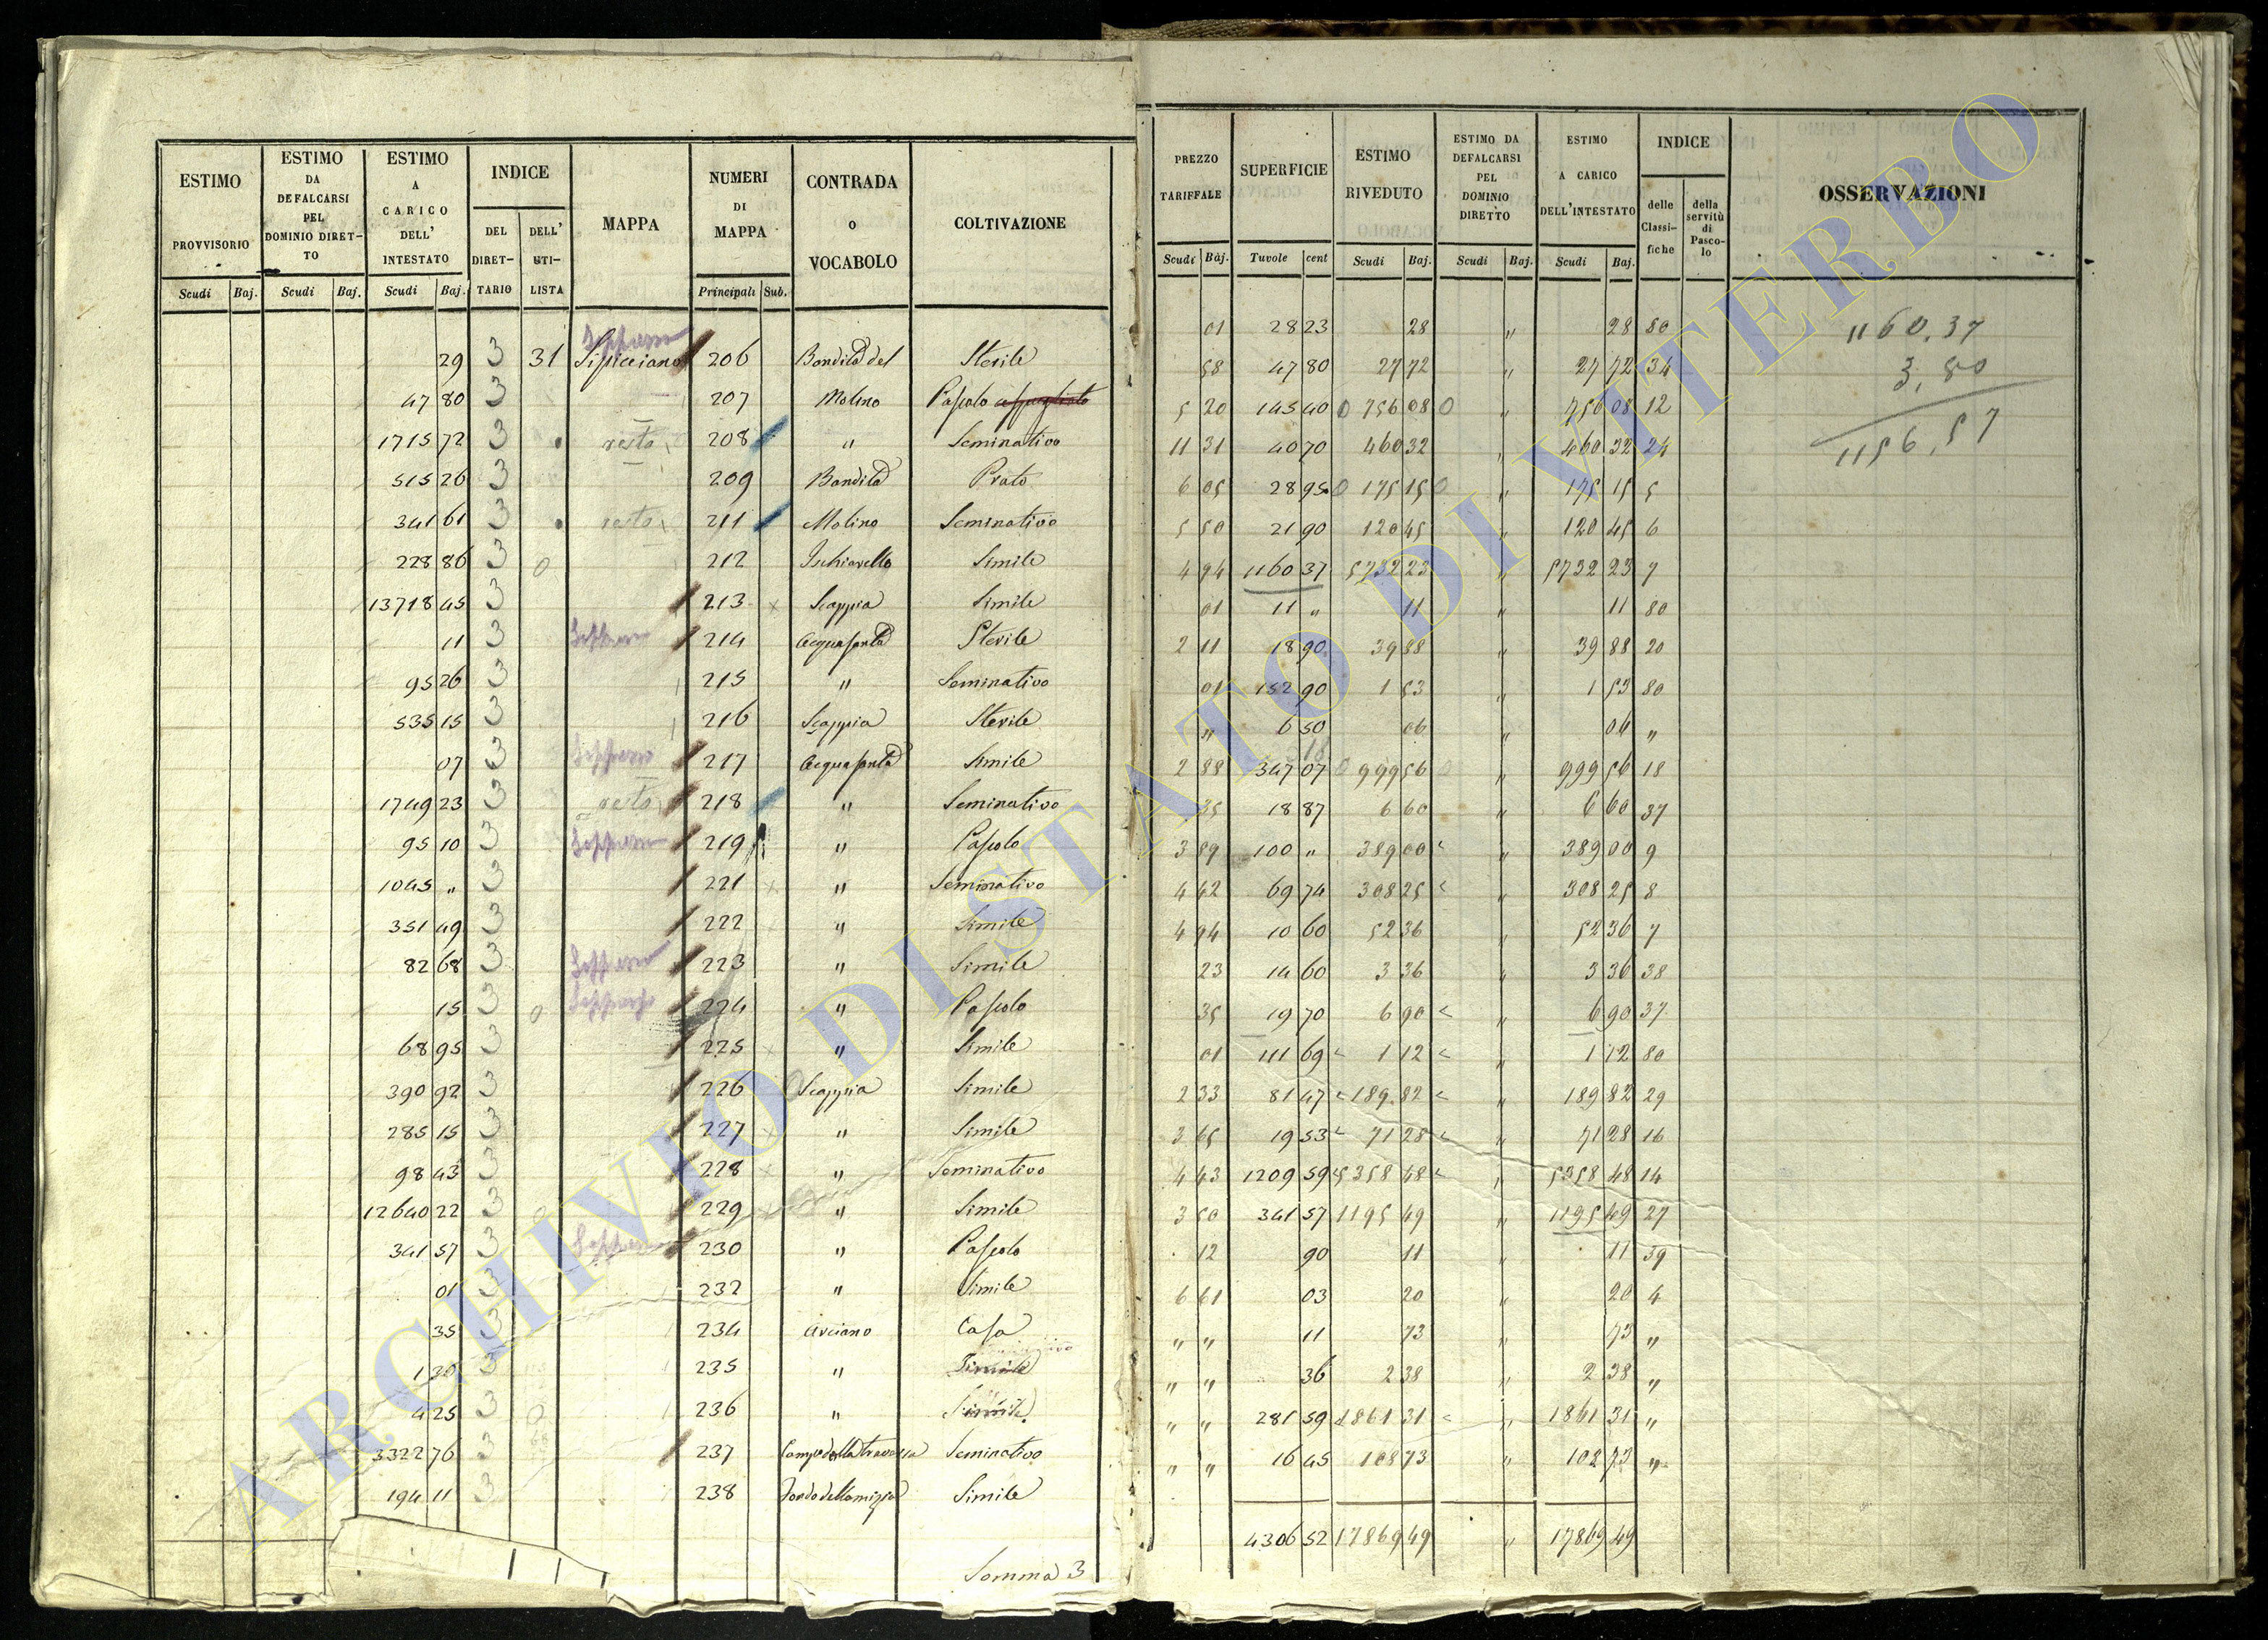 ESTIMO PROVVISORIO
ESTIMO DA DEFALCARSI PEL DOMINIO DIRET- TO
ESTIMO A CARICO DELL' INTESTATO
INDICE
DEL DIRET- TARIO
DELL' UTI- LISTA
MAPPA
NUMERI DI MAPPA
CONTRADA O VOCABOLO
COLTIVAZIONE
Scudi Baj. Scudi Baj. Scudi Baj. Principali Sub.
29 3 31 Sipicciano 206 Bandita del Sterile
47 80 3 207 Molino Pascolo
1715 72 3 resto 208 " Seminativo
515 26 3 209 Bandita Prato
341 61 3 resto 211 Molino Seminativo
228 86 3 0 212 Ischiarello Simile
13718 45 3 213 x Scappia Simile
11 3 Soppresso 214 Acquasanta Sterile
95 26 3 215 " Seminativo
535 15 3 216 Scappia Sterile
07 3 Soppresso 217 Acquasanta Simile
1749 23 3 resto 218 " Seminativo
95 10 3 Soppresso 219 " Pascolo
1045 " 3 221 x " Seminativo
351 49 3 222 " Simile
82 68 3 Soppresso 223 " Simile
15 3 0 Soppresso 224 " Pascolo
68 95 3 225 x " Simile
390 92 3 226 Scappia Simile
285 15 3 227 x " Simile
98 43 3 228 x " Seminativo
12640 22 3 229 " Simile
341 57 3 Soppresso 230 " Pascolo
01 3 232 " Simile
35 3 234 Arciano Casa
1 30 3 235 " Simile
4 25 3 236 " Simile
3322 76 3 237 Campo della Seminativo
194 11 3 238 Simile
Somma 3
PREZZO TARIFFALE
SUPERFICIE
ESTIMO RIVEDUTO
ESTIMO DA DEFALCARSI PEL DOMINIO DIRETTO
ESTIMO A CARICO DELL'INTESTATO
INDICE
delle Classi- fiche
della servitù di Pasco- lo
OSSERVAZIONI
Scudi Baj. Tavole cent Scudi Baj. Scudi Baj. Scudi Baj.
01 28 23 28 " 28 80
58 47 80 27 72 " 27 72 34
5 20 145 40 0 756 08 0 " 756 08 12
11 31 40 70 460 32 " 460 32 24
6 05 28 95 0 175 15 0 " 175 15 5
5 50 21 90 120 45 " 120 45 6
4 94 1160 37 5732 23 " 5732 23 7
01 11 " 11 " 11 80
2 11 18 90 39 88 " 39 88 20
01 152 90 1 53 " 1 53 80
" 6 50 06 " 04 "
2 88 347 07 0 999 56 0 " 999 56 18
35 18 87 6 60 " 6 60 37
3 89 100 " 389 00 " 389 00 9
4 42 69 74 308 25 " 308 25 8
4 94 10 60 52 36 " 52 36 7
23 14 60 3 36 " 3 36 38
35 19 70 6 90 " 6 90 37
01 111 69 1 12 " 1 12 80
2 33 81 47 189 82 " 189 82 29
3 65 19 53 71 28 " 71 28 16
4 43 1209 59 5358 48 " 5358 48 14
3 50 341 57 1195 49 " 1195 49 27
12 90 11 " 11 39
6 61 03 20 " 20 4
" " 11 73 " 73 "
" " 36 2 38 " 2 38 "
" " 281 59 1861 31 " 1861 31 "
" " 16 45 108 73 " 108 73 "
4306 52 17869 49 " 17869 49
1160.37
3,80
1156,57
ARCHIVIO DI STATO DI VITERBO